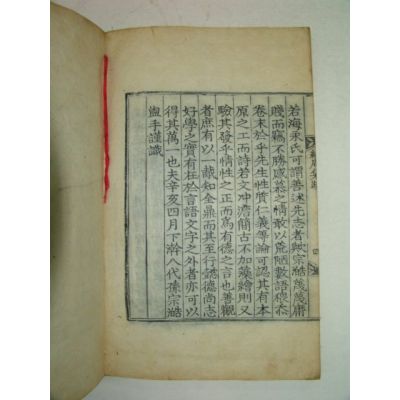 若海乘氏可謂善述先志者歟宗皓蔑蔑庸
賤而竊不勝感慕之情敢以荒陋數語續忝
卷末於乎先生性質仁義等論可認其有本
原之工而詩若文冲澹簡古不加藻繪則又
驗其發乎情性之正而爲有德之言也善觀
者庶有以一臠知全鼎而其至行懿德尚志
好學之實有在於言語文字之外者亦可以
得其萬一也夫辛亥四月下澣八代孫宗皓
盥手謹識